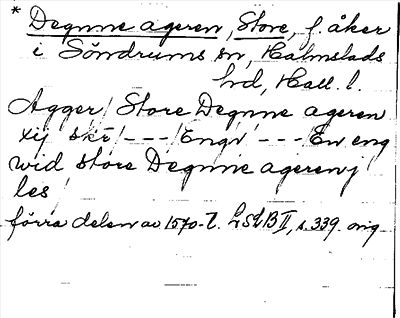 * Degnne ageren, Store, f. åker
i Söndrums sn, Halmstads
hd, Hall. l.
Agger / Store Degnne ageren
xij skr / - - - / Engr / - - - En eng
wid store Degnne agerenn j
les /
förra delen av 1570-t. LSLB II, s. 339. orig